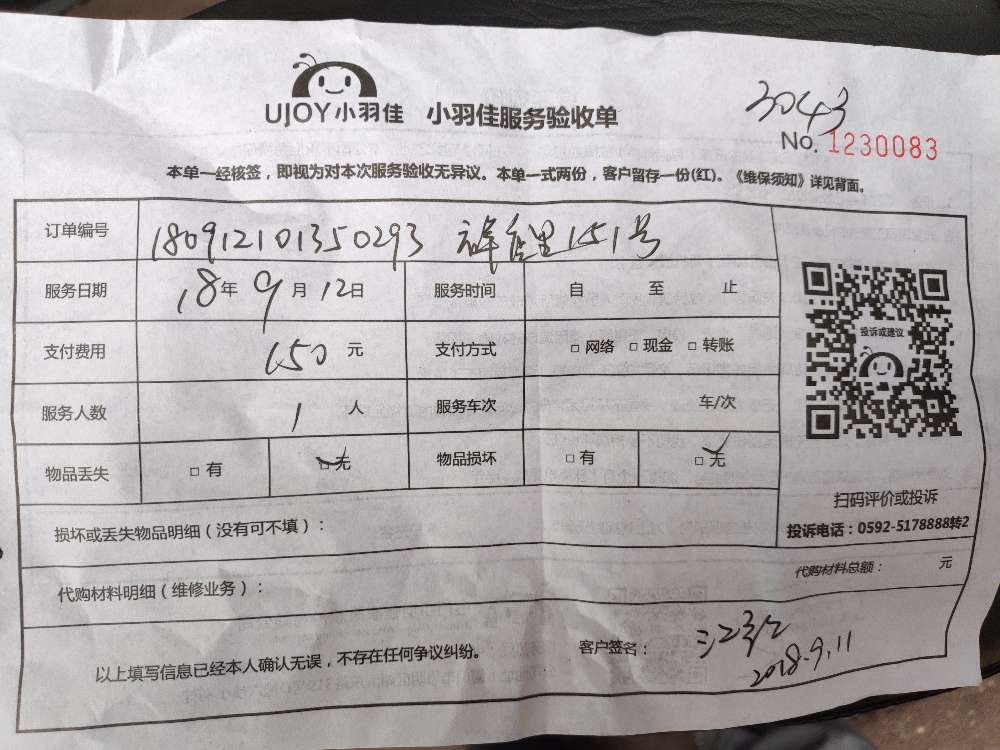 UJOY小羽佳 小羽佳服务验收单
3043
No. 1230083
本单一经核签，即视为对本次服务验收无异议。本单一式两份，客户留存一份(红)。《维保须知》详见背面。
订单编号 180912101350293 151号
服务日期 18年9月12日 服务时间 自 至 止
支付费用 150元 支付方式 □网络 □现金 □转账
服务人数 1人 服务车次 车/次
物品丢失 □有 □无 物品损坏 □有 □无
投诉或建议
扫码评价或投诉
投诉电话：0592-5178888转2
损坏或丢失物品明细（没有可不填）：
代购材料明细（维修业务）： 代购材料总额： 元
以上填写信息已经本人确认无误，不存在任何争议纠纷。 客户签名：
2018.9.11